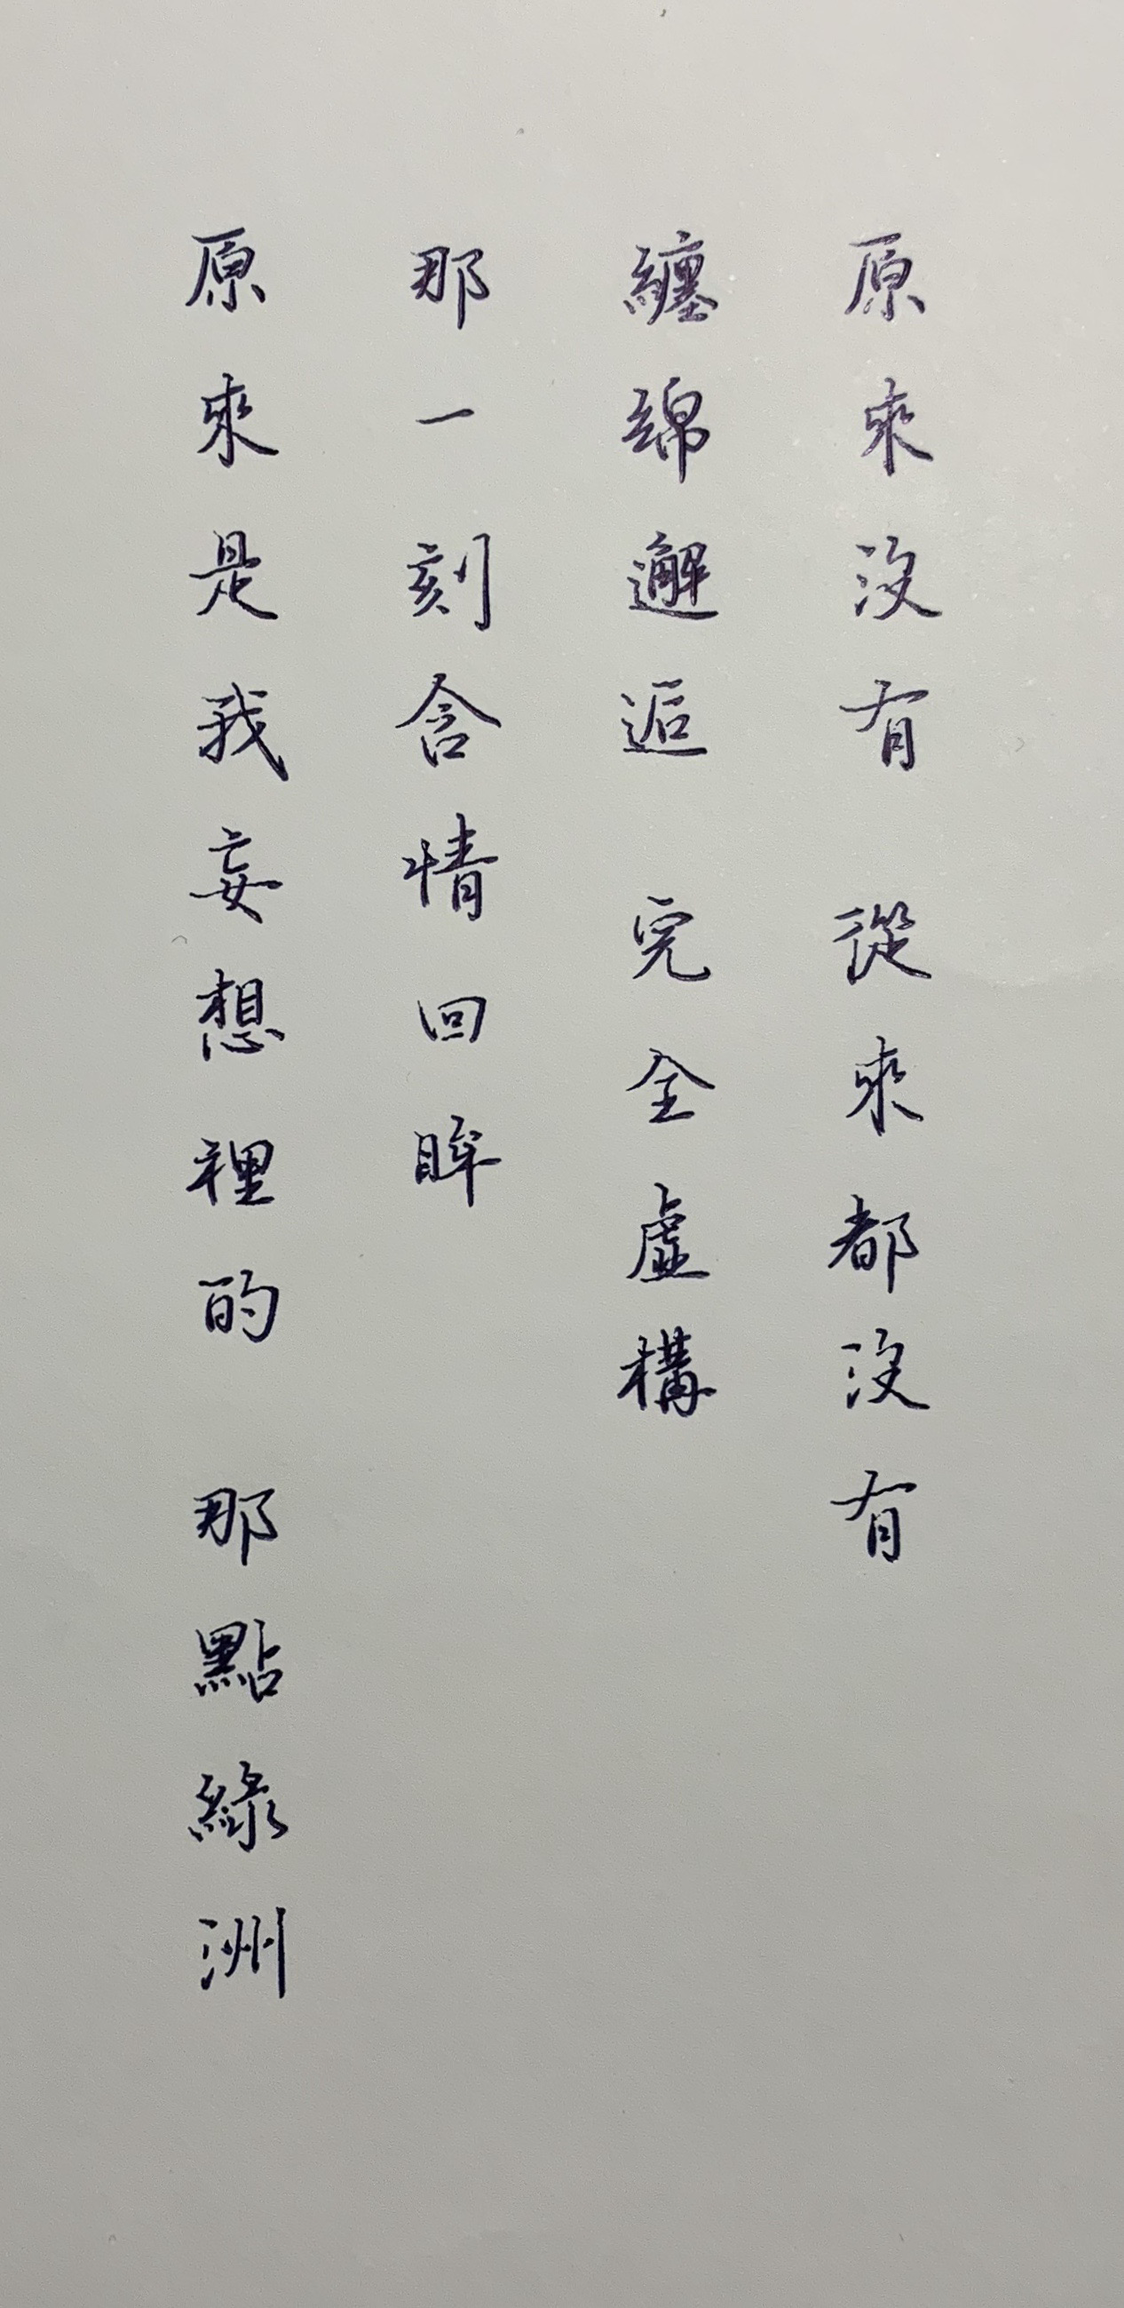 原來沒有 從來都沒有
纏綿邂逅 完全虛構
那一刻含情回眸
原來是我妄想裡的 那點綠洲